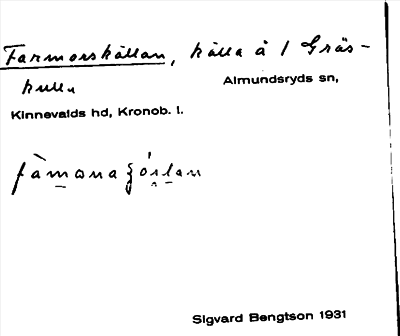 Farmorskällan, källa å 1 Gräs-
kulla Almundsryds sn,
Kinnevalds hd, Kronob. l.
Sigvard Bengtson 1931